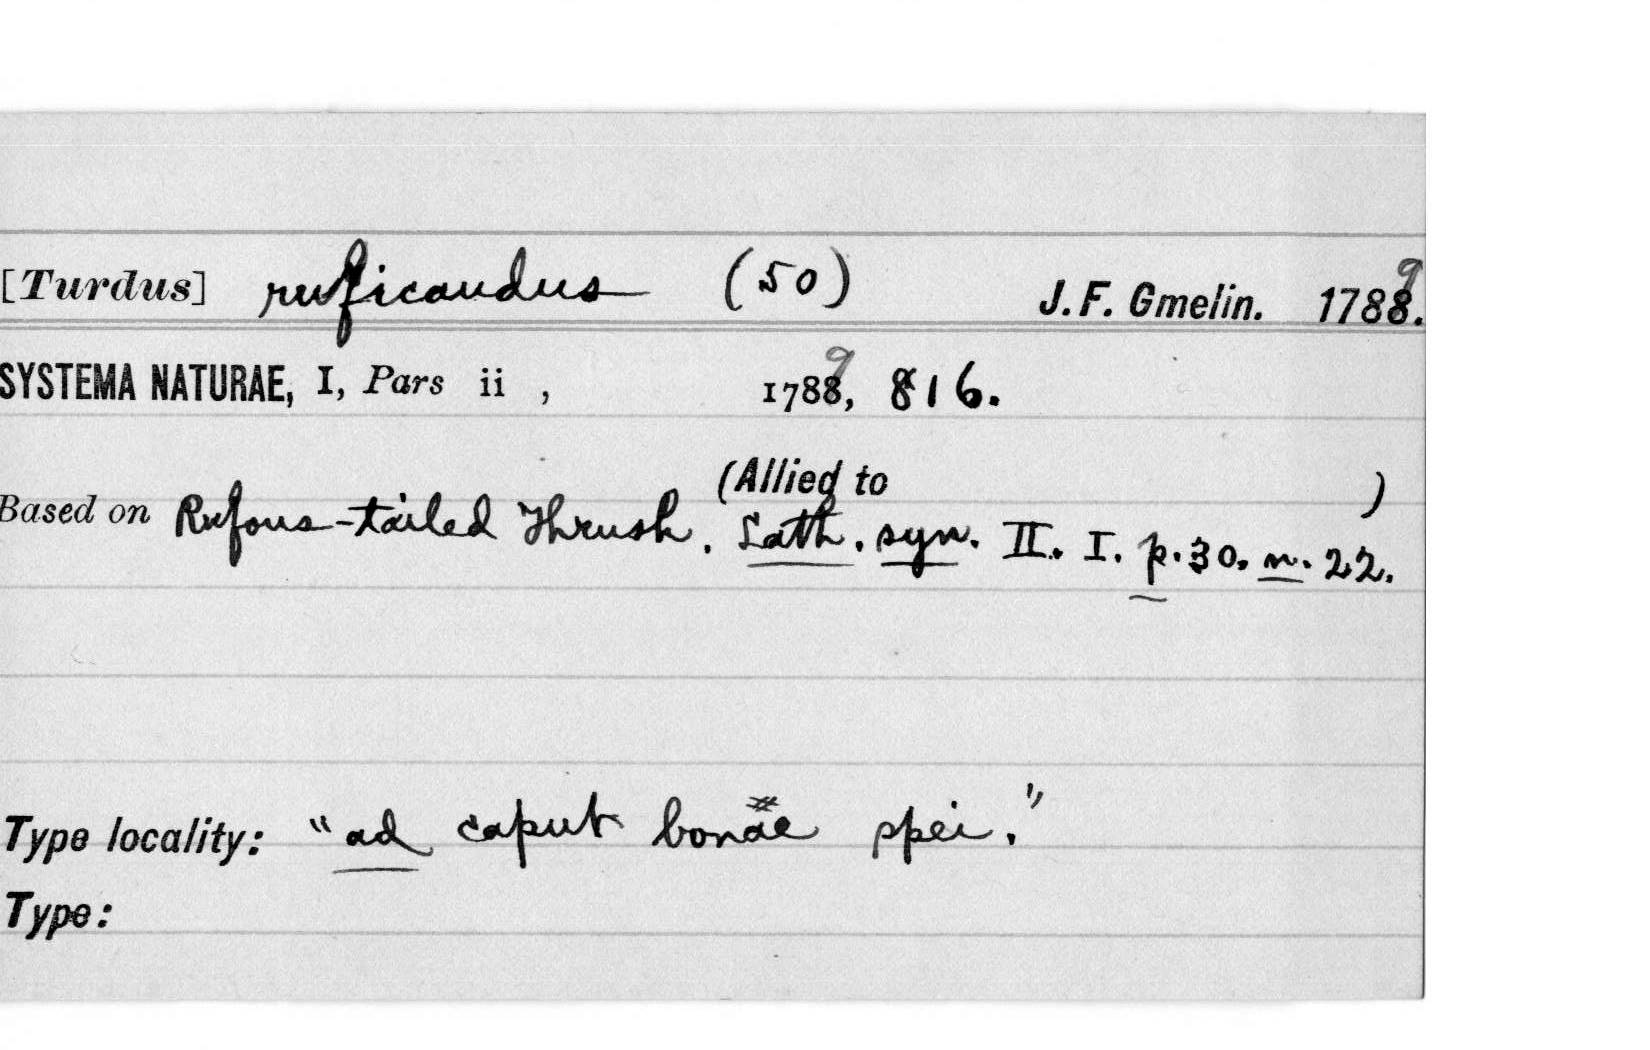 [Turdus] ruficaudus (50) J. F. Gmelin. 1788. 9
SYSTEMA NATURAE, I, Pars ii , 1788, 9 816.
(Allied to )
Based on Rufous-tailed Thrush. Lath. syn. II. I. p. 30. n. 22.
Type locality: "ad caput bonae spei."
Type: